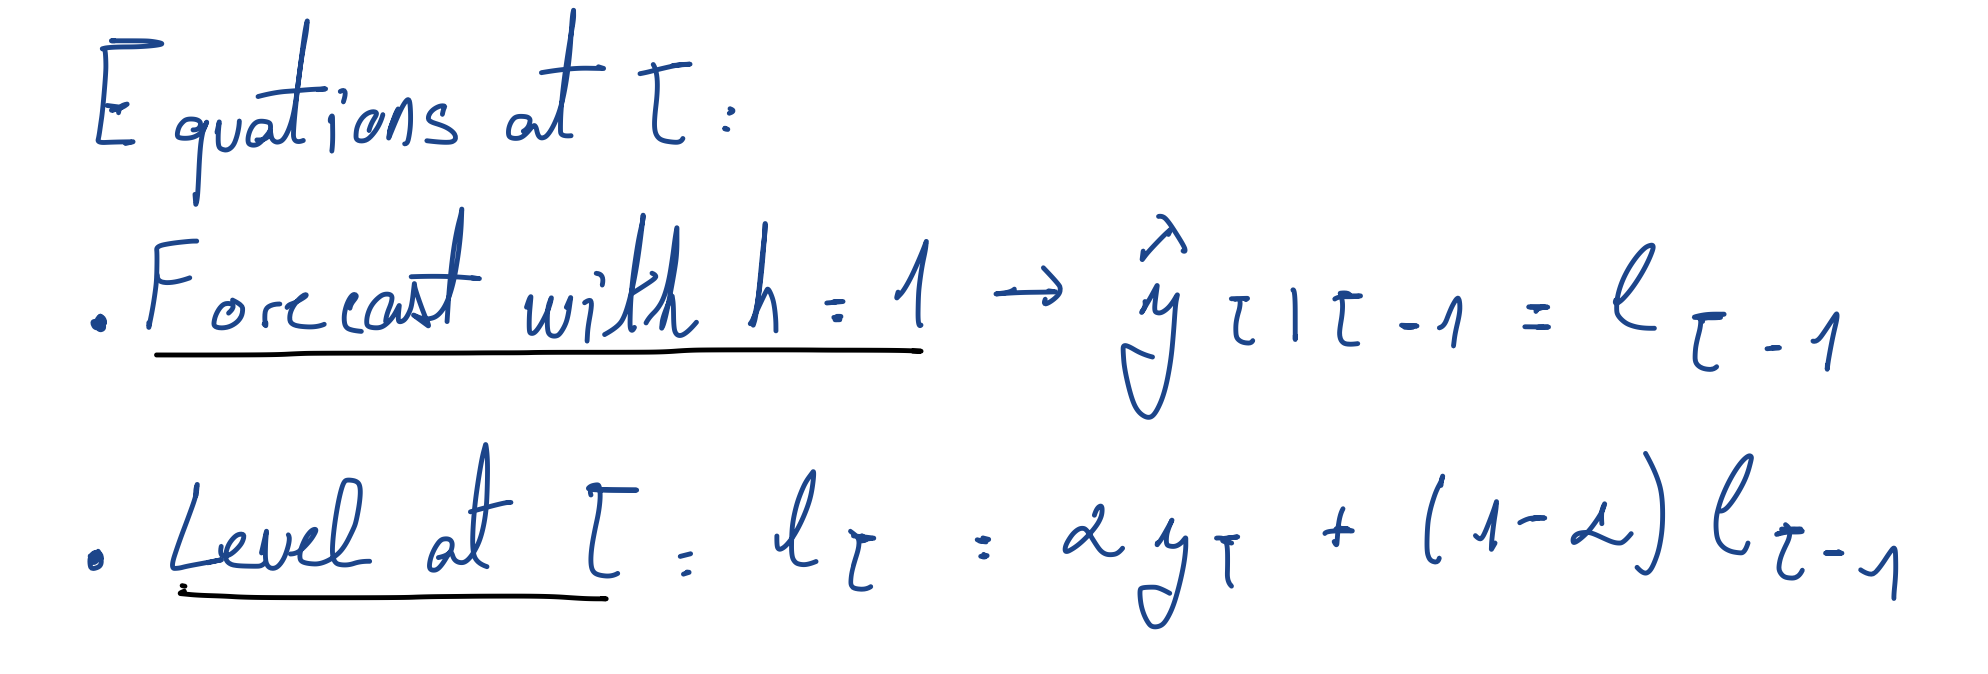 Equations at τ:
. Forecast with h = 1 → ŷ τ|τ-1 = l τ-1
. Level at τ = l τ = α y τ + (1-α) l τ-1